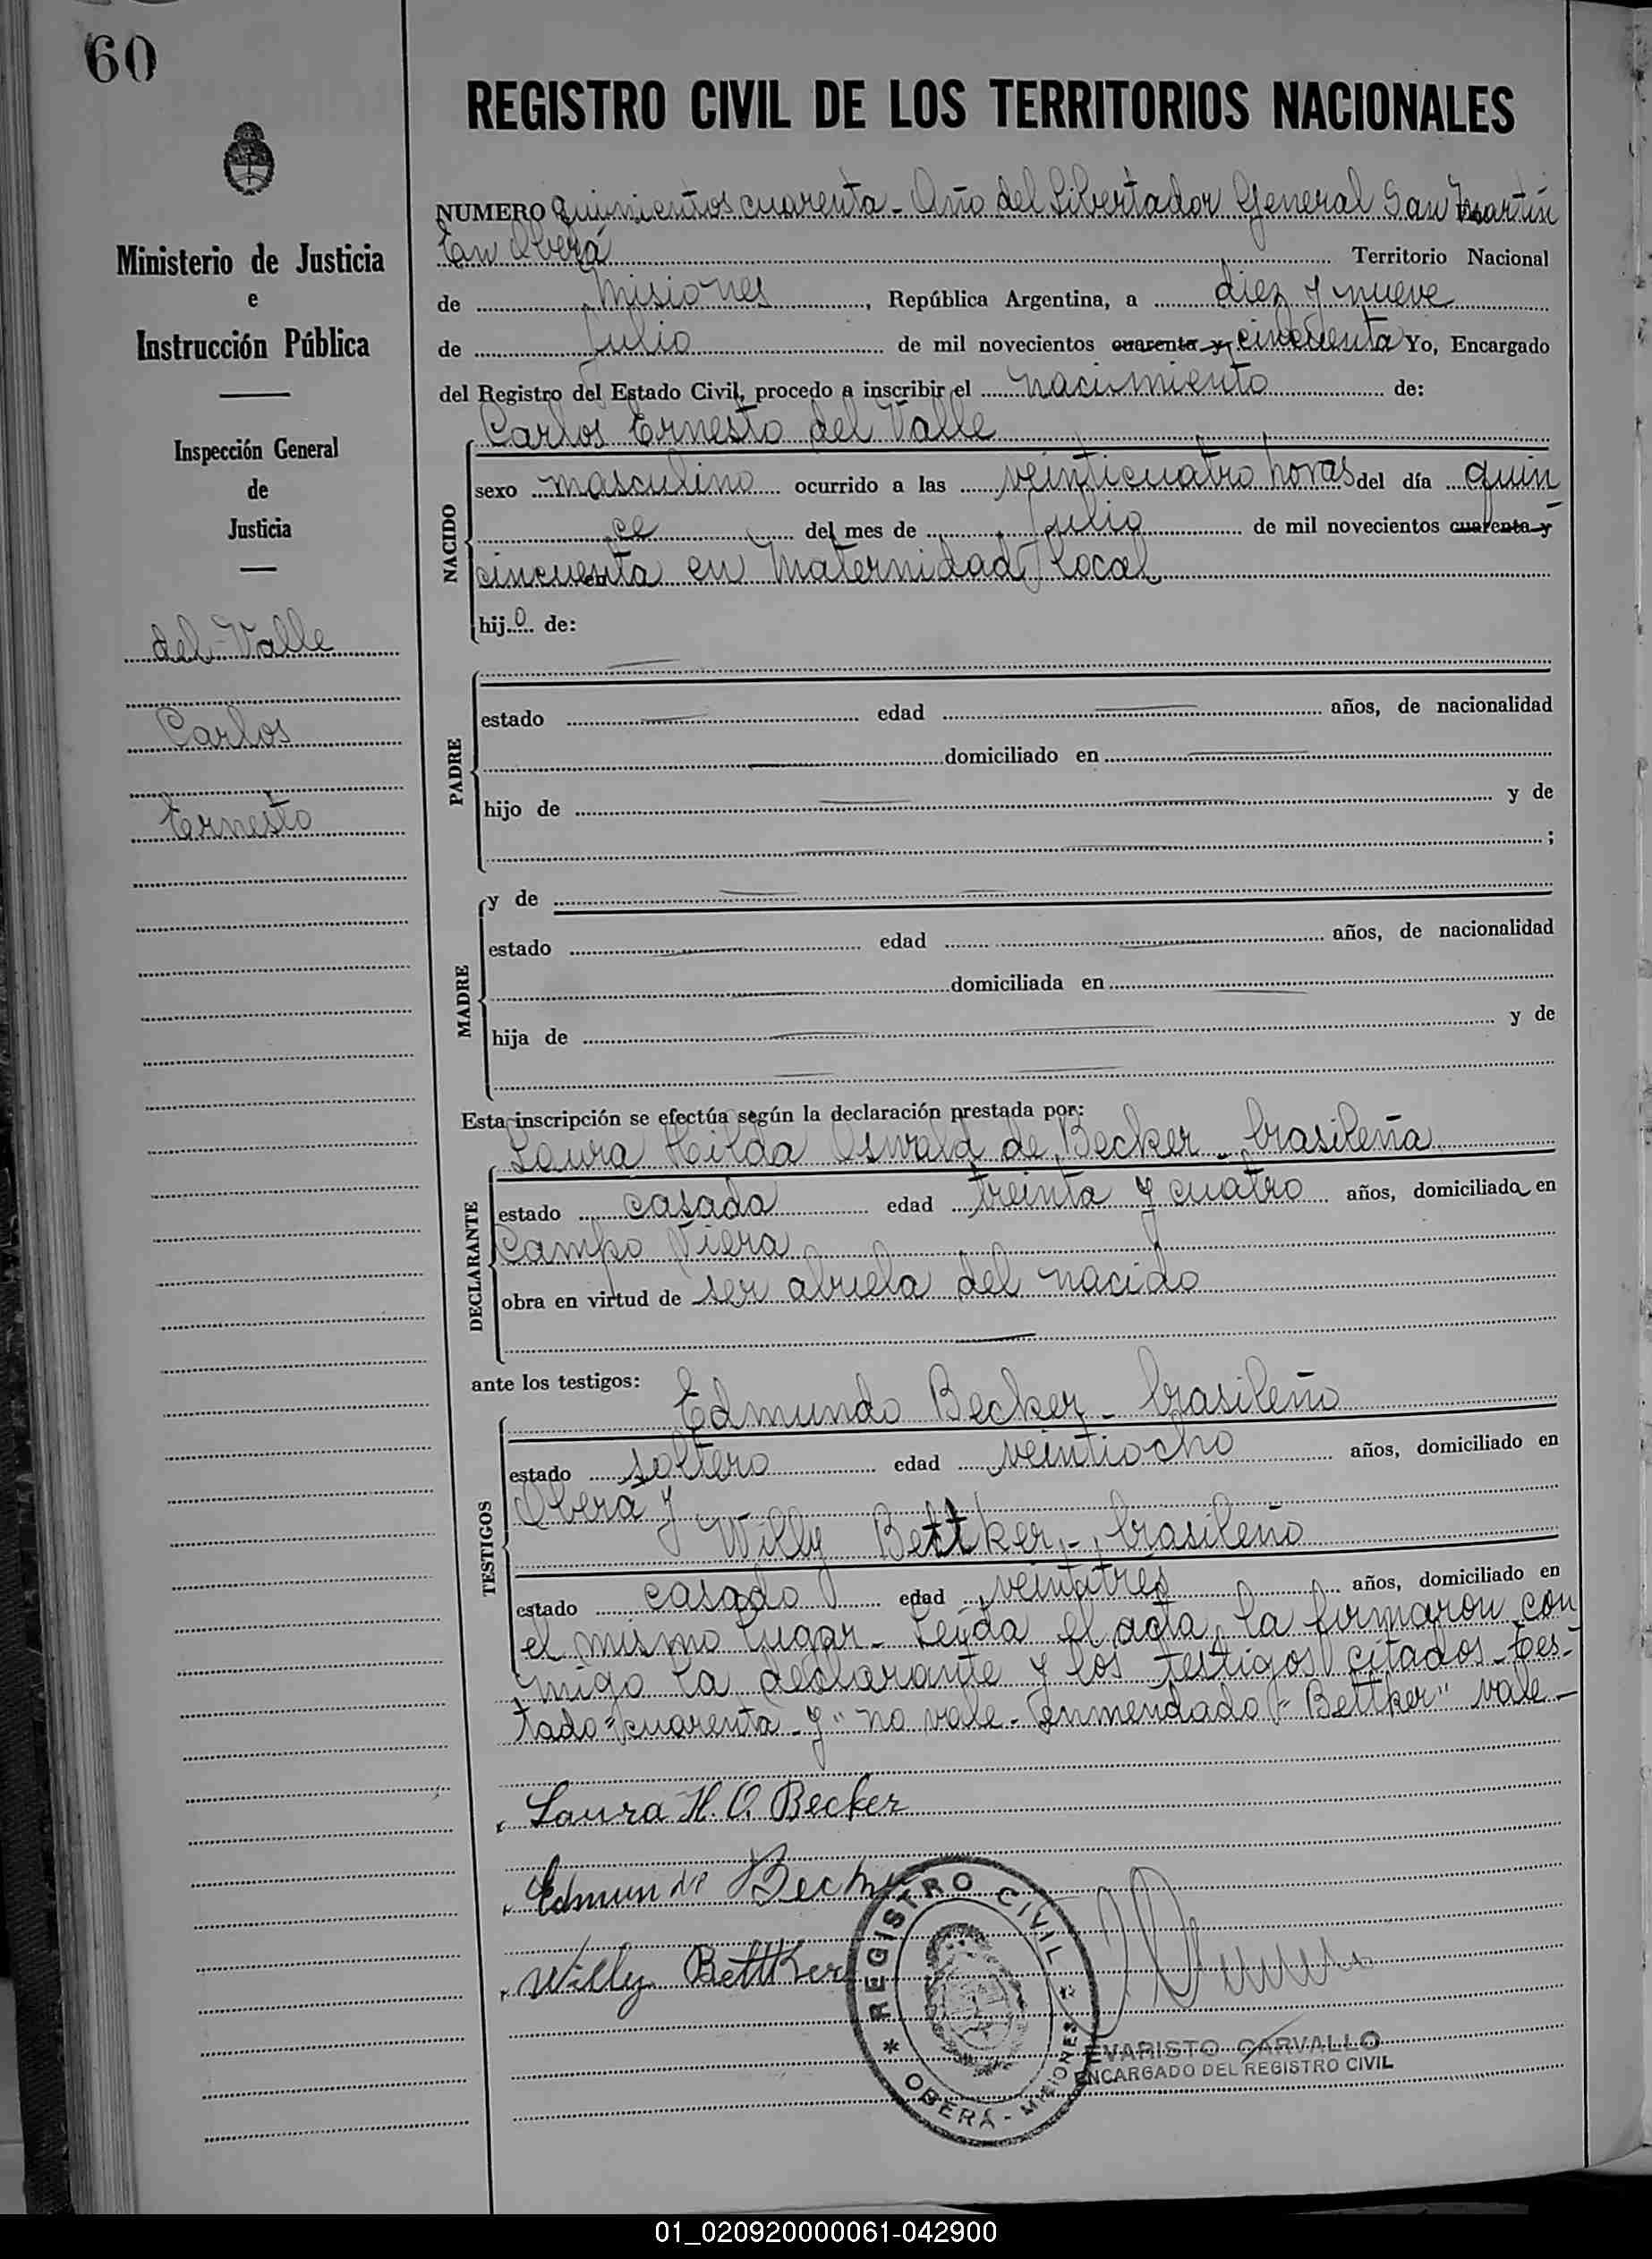 60
REGISTRO CIVIL DE LOS TERRITORIOS NACIONALES
Ministerio de Justicia
e
Instrucción Pública
Inspección General
de
Justicia
del Valle
Carlos
Ernesto
NUMERO quinientos cuarenta - Año del Libertador General San Martín
En Oberá Territorio Nacional
de Misiones, República Argentina, a diez y nueve
de Julio de mil novecientos cuarenta y cincuenta Yo, Encargado
del Registro del Estado Civil, procedo a inscribir el nacimiento de:
Carlos Ernesto del Valle
NACIDO
sexo masculino ocurrido a las veinticuatro horas del día quin
ce del mes de Julio de mil novecientos cuarenta y
cincuenta en Maternidad local
hijo de:
PADRE
estado edad años, de nacionalidad
domiciliado en
hijo de y de
;
MADRE
y de
estado edad años, de nacionalidad
domiciliada en
hija de y de
Esta inscripción se efectúa según la declaración prestada por:
DECLARANTE
Laura Hilda Oswald de Becker - brasileña
estado casada edad treinta y cuatro años, domiciliada en
Campo Viera
obra en virtud de ser abuela del nacido
ante los testigos:
TESTIGOS
Edmundo Becker - brasileño
estado soltero edad veintiocho años, domiciliado en
Oberá y Willy Bettker - brasileño
estado casado edad veintitres años, domiciliado en
el mismo lugar - Leída el acta, la firmaron con
migo la declarante y los testigos citados - Tes-
tado "cuarenta - y" no vale - Enmendado "Bettker" vale -
Laura H. O. Becker
Edmundo Becker
Willy Bettker
REGISTRO CIVIL
* OBERÁ - MISIONES *
EVARISTO CARVALLO
ENCARGADO DEL REGISTRO CIVIL
01_020920000061-042900